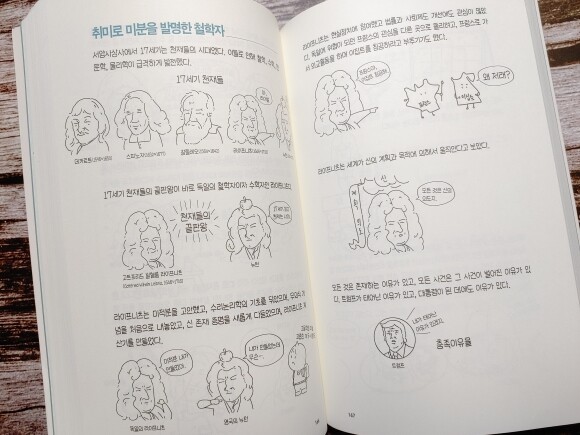 취미로 미분을 발명한 철학자
서양사상사에서 17세기는 천재들의 시대였다.
문학, 물리학이 급격하게 발전했다.
17세기 천재들
데카르트(1596~1650)
스피노자(1632~1677)
갈릴레이(1564~1642)
라이프니츠
17세기 천재들의 끝판왕이 바로 독일의 철학자이자 수학자인 라이프니츠다.
천재들의
끝판왕
고트프리트 빌헬름 라이프니츠
뉴턴
라이프니츠는 미적분을 고안했고, 수리논리학의 기초를 닦았으며,
념을 처음으로 내놓았고, 신 존재 증명을 새롭게 다듬었으며,
산기를 만들었다.
미적분 내가
만들었어.
내가 만들었는데
무슨…
독일의 라이프니츠
영국의 뉴턴
라이프니츠는 현실정치에 참여했고 법률과 사회제도 개선에도 관심이 많았
다. 독일에 위협이 되던 프랑스의 관심을 다른 곳으로 돌리려고, 프랑스로 가
서 외교활동을 하며 이집트를 침공하라고 부추기기도 했다.
프랑스야,
이집트 침공해.
프랑스
이집트
왜 저래?
라이프니츠는 세계가 신의 계획과 목적에 의해서 움직인다고 보았다.
신
모든 것은 신의
의도지.
모든 것은 존재하는 이유가 있고, 모든 사건은 그 사건이 벌어진 이유가 있
다. 트럼프가 태어난 이유가 있고, 대통령이 된 데에도 이유가 있다.
내가 태어난
이유가 있겠지.
트럼프
충족이유율